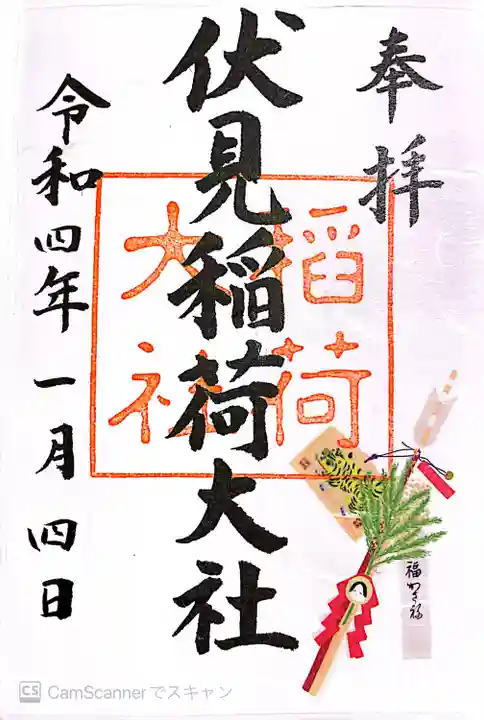 奉拝
伏見稲荷大社
稲荷
大社
令和四年一月四日
CS CamScannerでスキャン